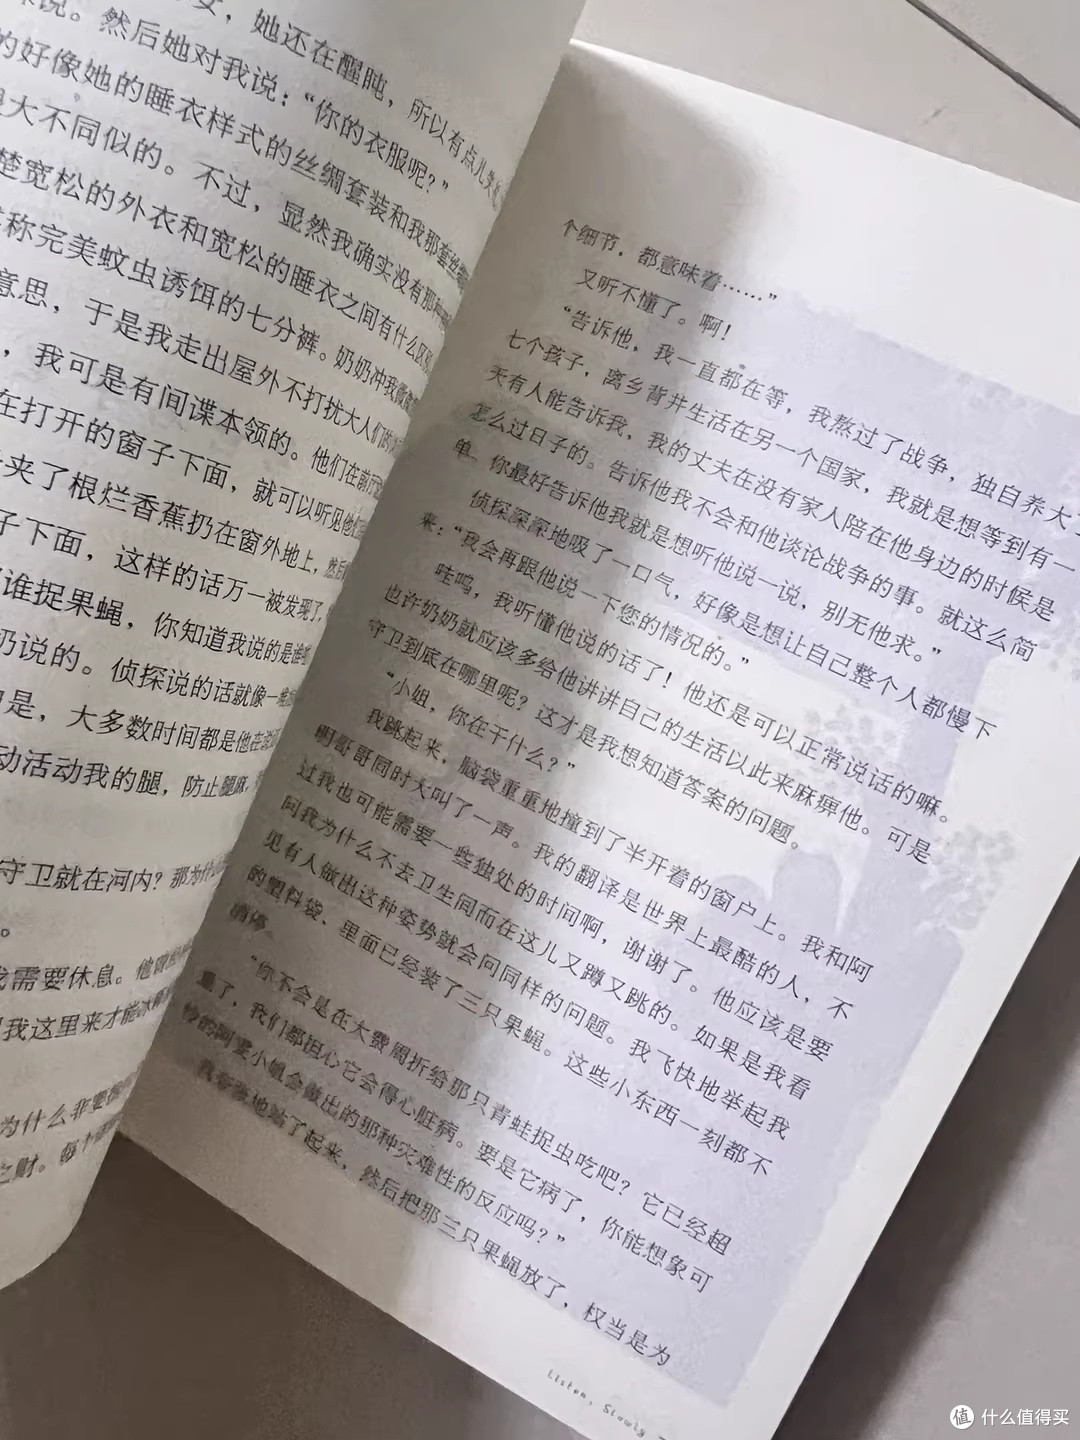 女，她还在醒盹，所以有点儿
说。然后她对我说：“你的衣服呢？”
的好像她的睡衣样式的丝绸套装和我那套
大不同似的。不过，显然我确实没有那种
楚宽松的外衣和宽松的睡衣之间有什么区
称完美蚊虫诱饵的七分裤。奶奶冲我微
意思，于是我走出屋外不打扰大人们的
，我可是有间谍本领的。他们在前厅
在打开的窗子下面，就可以听见他们
夹了根烂香蕉扔在窗外地上，然后
子下面，这样的话万一被发现了，
谁捉果蝇，你知道我说的是谁
奶说的。侦探说的话就像一堆
是，大多数时间都是他在说
动活动我的腿，防止腿麻，
守卫就在河内？那为什么
。
我需要休息。他曾
我这里来才能
为什么非要
之财。每个
个细节，都意味着……”
又听不懂了。啊！
“告诉他，我一直都在等，我熬过了战争，独自养大了
七个孩子，离乡背井生活在另一个国家，我就是想等到有一
天有人能告诉我，我的丈夫在没有家人陪在他身边的时候是
怎么过日子的。告诉他我不会和他谈论战争的事。就这么简
单。你最好告诉他我就是想听他说一说，别无他求。”
侦探深深地吸了一口气，好像是想让自己整个人都慢下
来：“我会再跟他说一下您的情况的。”
哇呜，我听懂他说的话了！他还是可以正常说话的嘛。
也许奶奶就应该多给他讲讲自己的生活以此来麻痹他。可是
守卫到底在哪里呢？这才是我想知道答案的问题。
“小姐，你在干什么？”
我跳起来，脑袋重重地撞到了半开着的窗户上。我和阿
明哥哥同时大叫了一声。我的翻译是世界上最酷的人，不
过我也可能需要一些独处的时间啊，谢谢了。他应该是要
问我为什么不去卫生间而在这儿又蹲又跳的。如果是我看
见有人做出这种姿势就会问同样的问题。我飞快地举起我
的塑料袋、里面已经装了三只果蝇。这些小东西一刻都不
消停。
“你不会是在大费周折给那只青蛙捉虫吃吧？它已经超
重了，我们都担心它会得心脏病。要是它病了，你能想象可
怜的阿星小姐会做出的那种灾难性的反应吗？”
我夸张地站了起来，然后把那三只果蝇放了，权当是为
Listen, Slowly
值 什么值得买